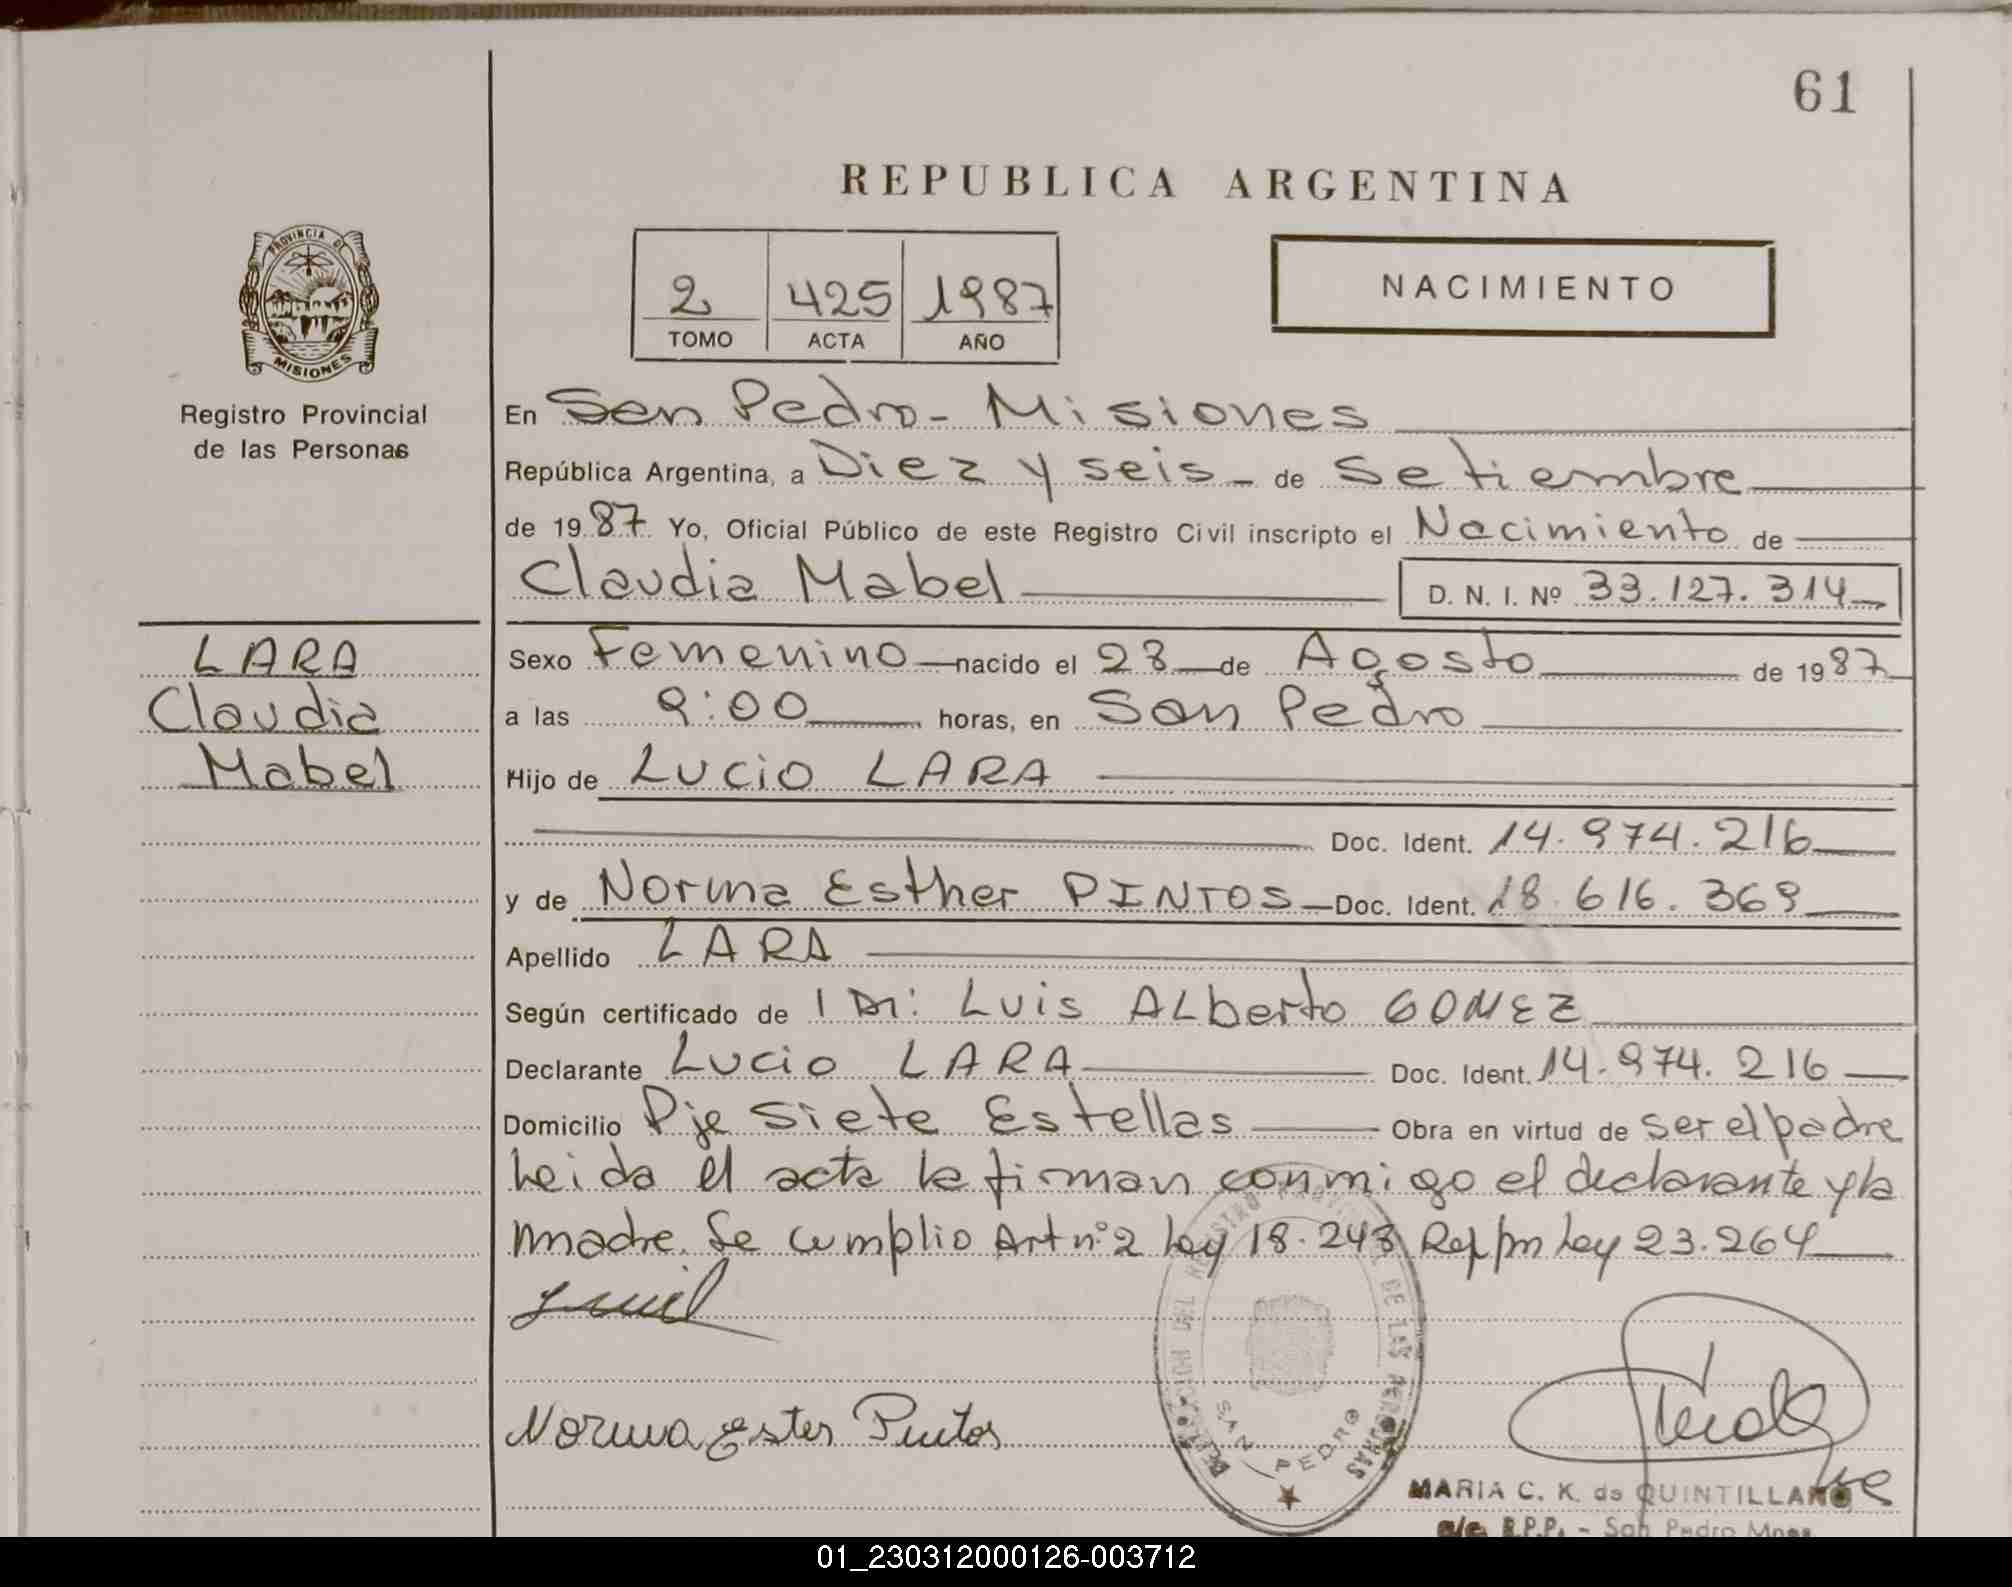 61
REPUBLICA ARGENTINA
PROVINCIA DE
MISIONES
Registro Provincial
de las Personas
2 425 1987
TOMO ACTA AÑO
NACIMIENTO
En San Pedro - Misiones
República Argentina, a Diez y seis - de Setiembre
de 1987 Yo, Oficial Público de este Registro Civil inscripto el Nacimiento de
Claudia Mabel D. N. I. Nº 33.127.314
LARA
Claudia
Mabel
Sexo Femenino nacido el 28 de Agosto de 1987
a las 9:00 horas, en San Pedro
Hijo de Lucio LARA
Doc. Ident. 14.974.216
y de Norma Esther PINTOS Doc. Ident. 18.616.369
Apellido LARA
Según certificado de 1 Dr: Luis ALberto GOMEZ
Declarante Lucio LARA Doc. Ident. 14.974.216
Domicilio Pje Siete Estellas Obra en virtud de ser el padre
Leida el acta la firman conmigo el declarante y la
madre. Se cumplio Art nº 2 Ley 18.248 Ref pm Ley 23.264
Norma Ester Pintos
DELEGACION DEL REGISTRO PROVINCIAL DE LAS PERSONAS
SAN PEDRO
MARIA C. K. de QUINTILLANO
a/c. R.P.P. - San Pedro Mnes.
01_230312000126-003712